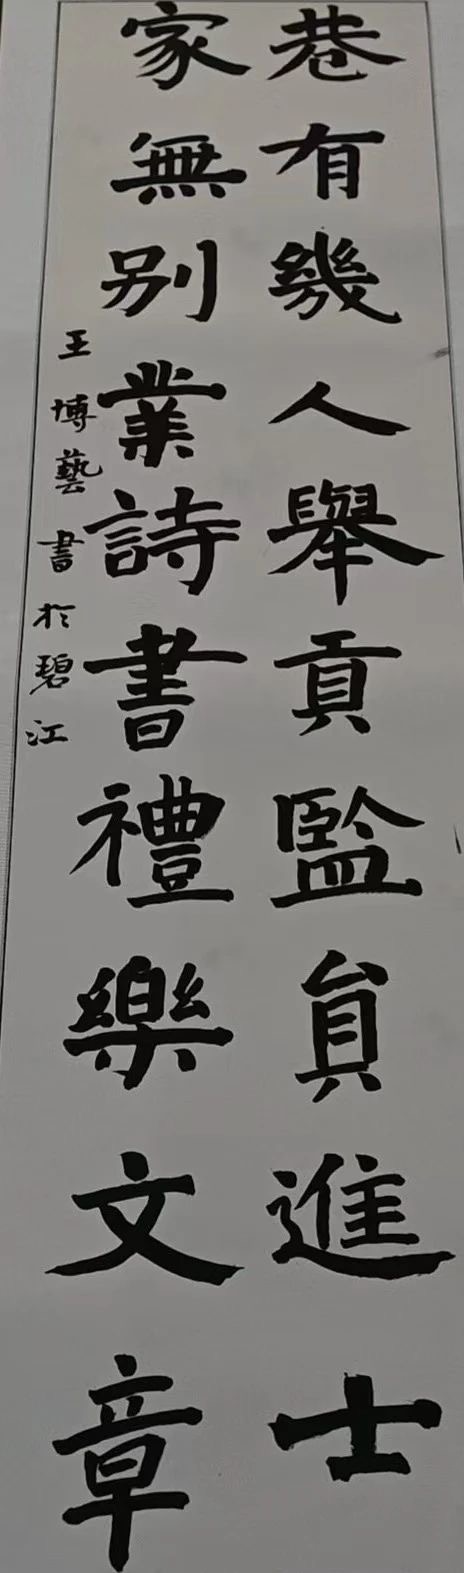 巷有幾人舉貢監貟進士
家無别業詩書禮樂文章
王博藝書於碧江